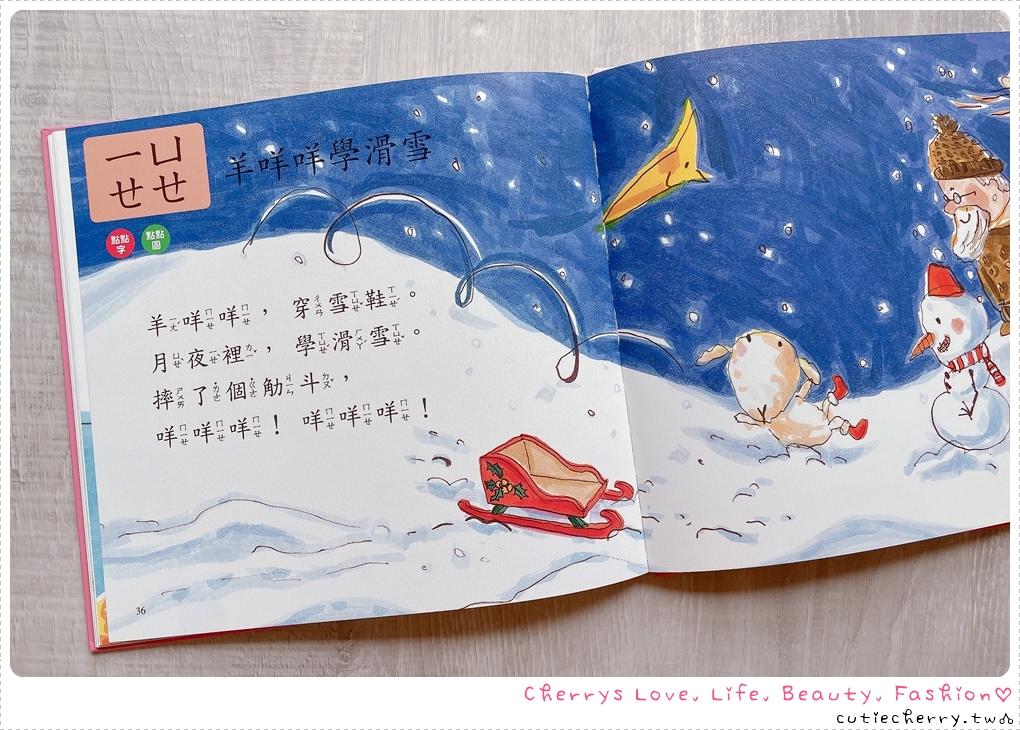 ㄧㄝ ㄩㄝ
羊咩咩學滑雪
點點字 點點圖
羊ㄧㄤˊ咩ㄇㄧㄝ咩ㄇㄧㄝ，穿ㄔㄨㄢ雪ㄒㄩㄝˇ鞋ㄒㄧㄝˊ。
月ㄩㄝˋ夜ㄧㄝˋ裡ㄌㄧˇ，學ㄒㄩㄝˊ滑ㄏㄨㄚˊ雪ㄒㄩㄝˇ。
摔ㄕㄨㄞ了ㄌㄜ˙個ㄍㄜ˙觔ㄐㄧㄣ斗ㄉㄡˇ，
咩ㄇㄧㄝ咩ㄇㄧㄝ咩ㄇㄧㄝ！咩ㄇㄧㄝ咩ㄇㄧㄝ咩ㄇㄧㄝ！
36
Cherrys Love. Life. Beauty. Fashion♡
cutiecherry.tw